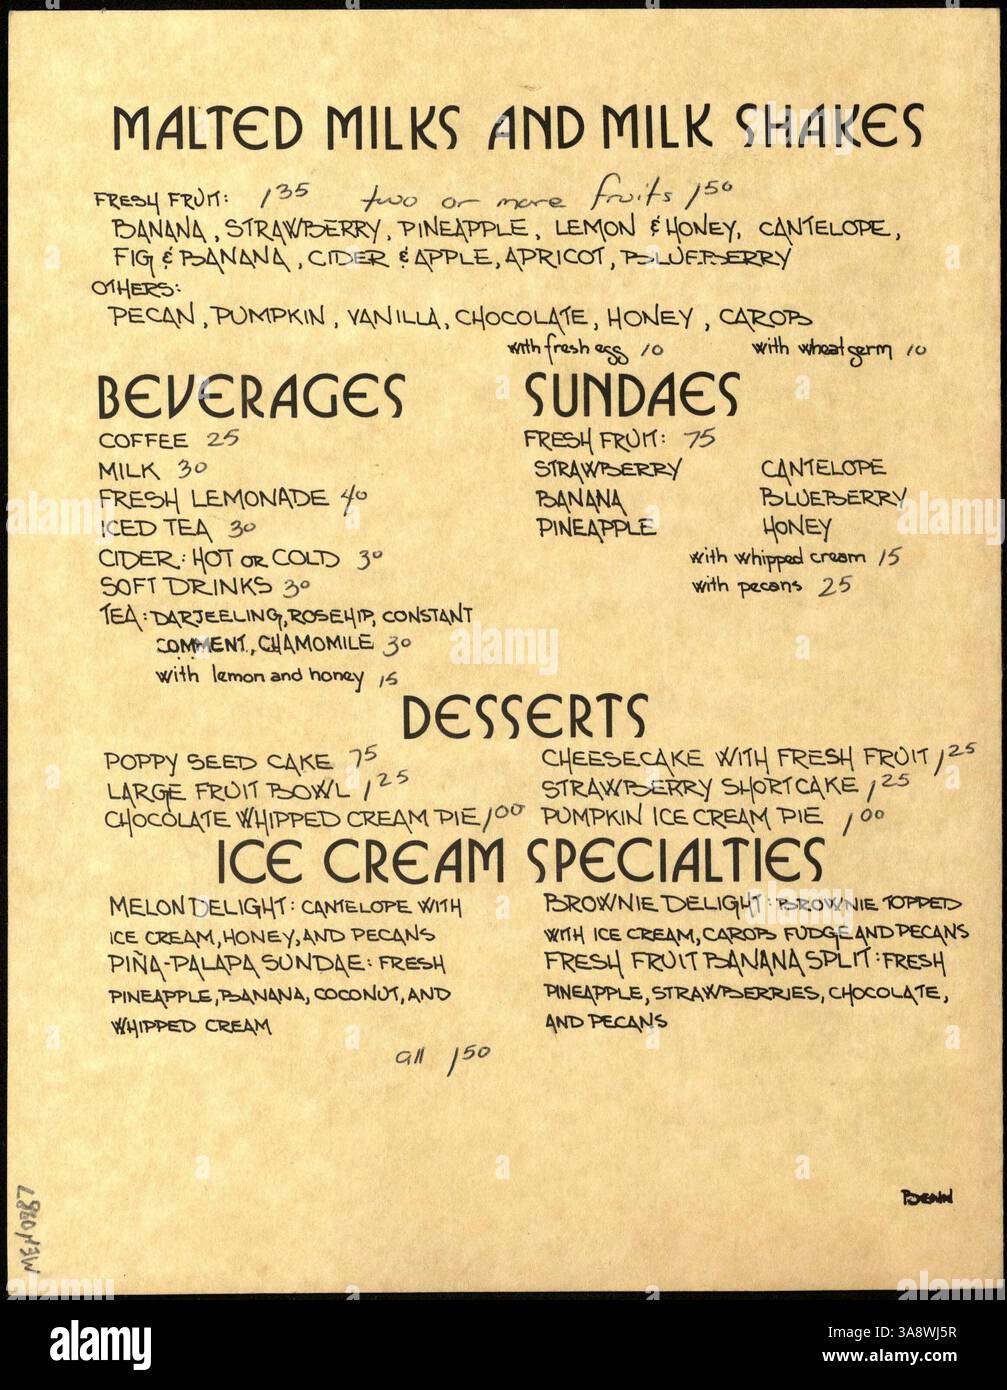 MALTED MILKS AND MILK SHAKES
FRESH FRUIT: 1.35 two or more fruits 1.50
BANANA, STRAWBERRY, PINEAPPLE, LEMON & HONEY, CANTELOPE,
FIG & BANANA, CIDER & APPLE, APRICOT, BLUEBERRY
OTHERS:
PECAN, PUMPKIN, VANILLA, CHOCOLATE, HONEY, CAROB
with fresh egg 10 with wheat germ 10
BEVERAGES
COFFEE 25
MILK 30
FRESH LEMONADE 40
ICED TEA 30
CIDER: HOT OR COLD 30
SOFT DRINKS 30
TEA: DARJEELING, ROSEHIP, CONSTANT
COMMENT, CHAMOMILE 30
with lemon and honey 15
SUNDAES
FRESH FRUIT: 75
STRAWBERRY CANTELOPE
BANANA BLUEBERRY
PINEAPPLE HONEY
with whipped cream 15
with pecans 25
DESSERTS
POPPY SEED CAKE 75
LARGE FRUIT BOWL 1.25
CHOCOLATE WHIPPED CREAM PIE 1.00
CHEESECAKE WITH FRESH FRUIT 1.25
STRAWBERRY SHORTCAKE 1.25
PUMPKIN ICE CREAM PIE 1.00
ICE CREAM SPECIALTIES
MELON DELIGHT: CANTELOPE WITH
ICE CREAM, HONEY, AND PECANS
PIÑA-PALAPA SUNDAE: FRESH
PINEAPPLE, BANANA, COCONUT, AND
WHIPPED CREAM
BROWNIE DELIGHT: BROWNIE TOPPED
WITH ICE CREAM, CAROB FUDGE AND PECANS
FRESH FRUIT BANANA SPLIT: FRESH
PINEAPPLE, STRAWBERRIES, CHOCOLATE,
AND PECANS
all 1.50
BENN
MEN0987
alamy
Image ID: 3A8WJ5R
www.alamy.com